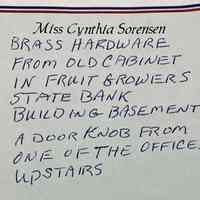 Miss Cynthia Sorensen
BRASS HARDWARE
FROM OLD CABINET
IN FRUIT GROWERS
STATE BANK
BUILDING BASEMENT
A DOOR KNOB FROM
ONE OF THE OFFICE
UPSTAIRS